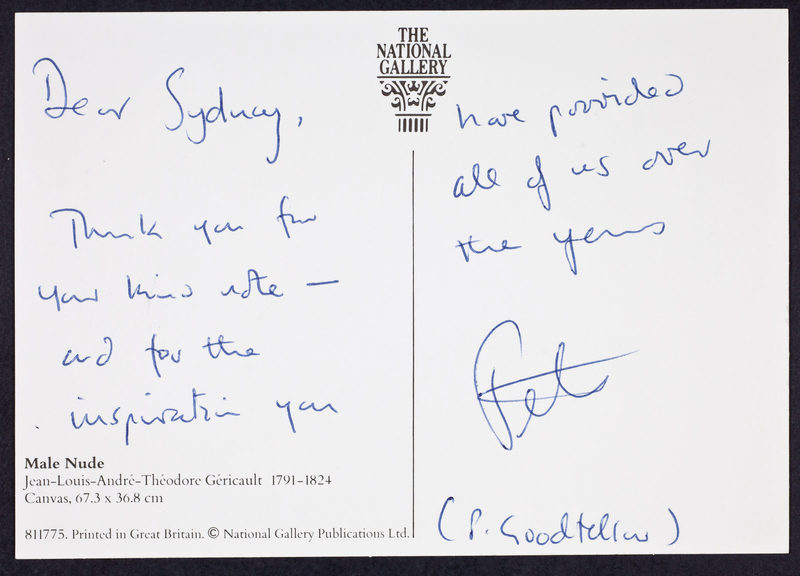 THE
NATIONAL
GALLERY
Dear Sydney,
Thank you for
your kind note —
and for the
inspiration you
have provided
all of us over
the years
Pete
(P. Goodfellow)
Male Nude
Jean-Louis-André-Théodore Géricault 1791-1824
Canvas, 67.3 x 36.8 cm
811775. Printed in Great Britain. © National Gallery Publications Ltd.